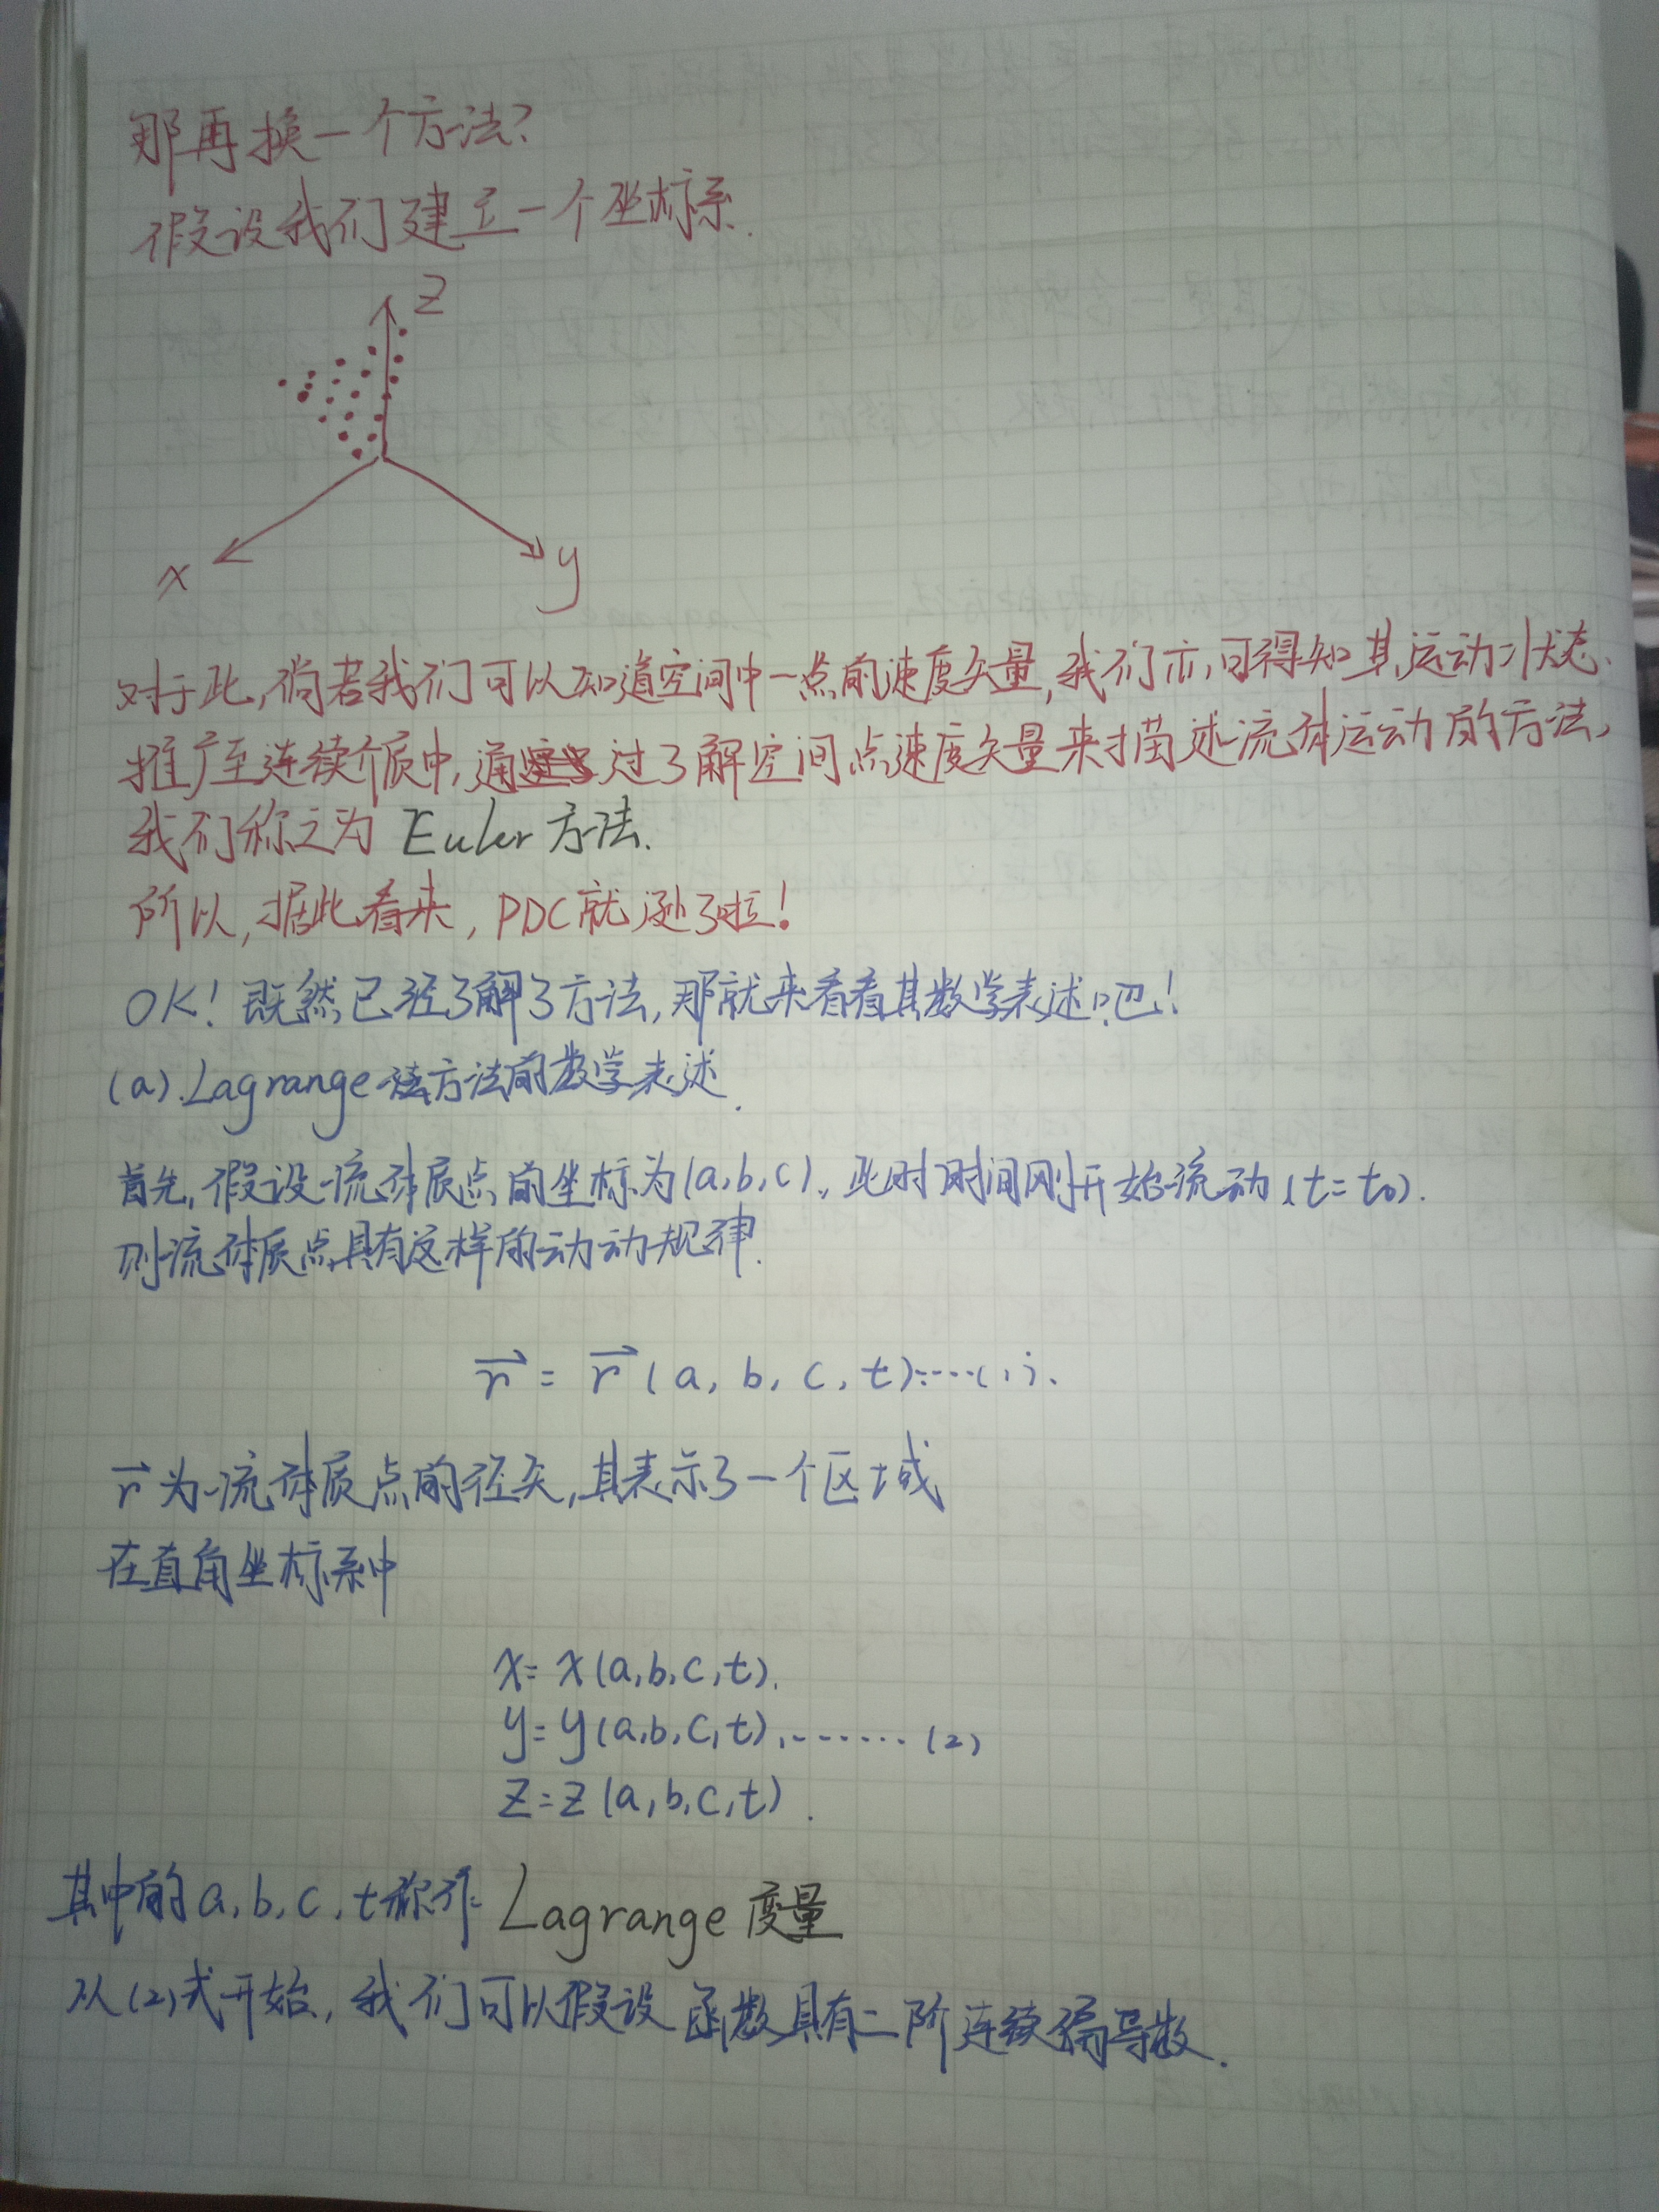 那再换一个方法?
假设我们建立一个坐标系.
z
x
y
对于此,倘若我们可以知道空间中一点的速度矢量,我们亦可得知其运动状态.
推广至连续介质中,通过了解空间点速度矢量来描述流体运动的方法,
我们称之为 Euler 方法.
所以,据此看来, PDC就逊了啦!
OK! 既然已经了解了方法,那就来看看其数学表述吧!
(a).Lagrange 方法的数学表述.
首先,假设流体质点的坐标为(a,b,c),此时时间刚开始流动(t=t₀).
则流体质点具有这样的动动规律.
r⃗ = r⃗ (a, b, c, t)······(1).
r⃗ 为流体质点的径矢,其表示了一个区域
在直角坐标系中
x= x(a,b,c,t).
y= y(a,b,c,t).······· (2)
z=z(a,b,c,t).
其中的a,b,c,t称作 Lagrange 变量
从(2)式开始, 我们可以假设函数具有二阶连续偏导数.